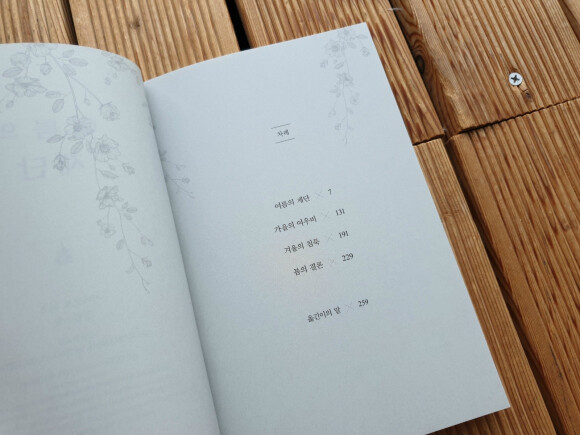 차례
여름의 제단 × 7
가을의 여우비 × 131
겨울의 침묵 × 191
봄의 결론 × 229
옮긴이의 말 × 259